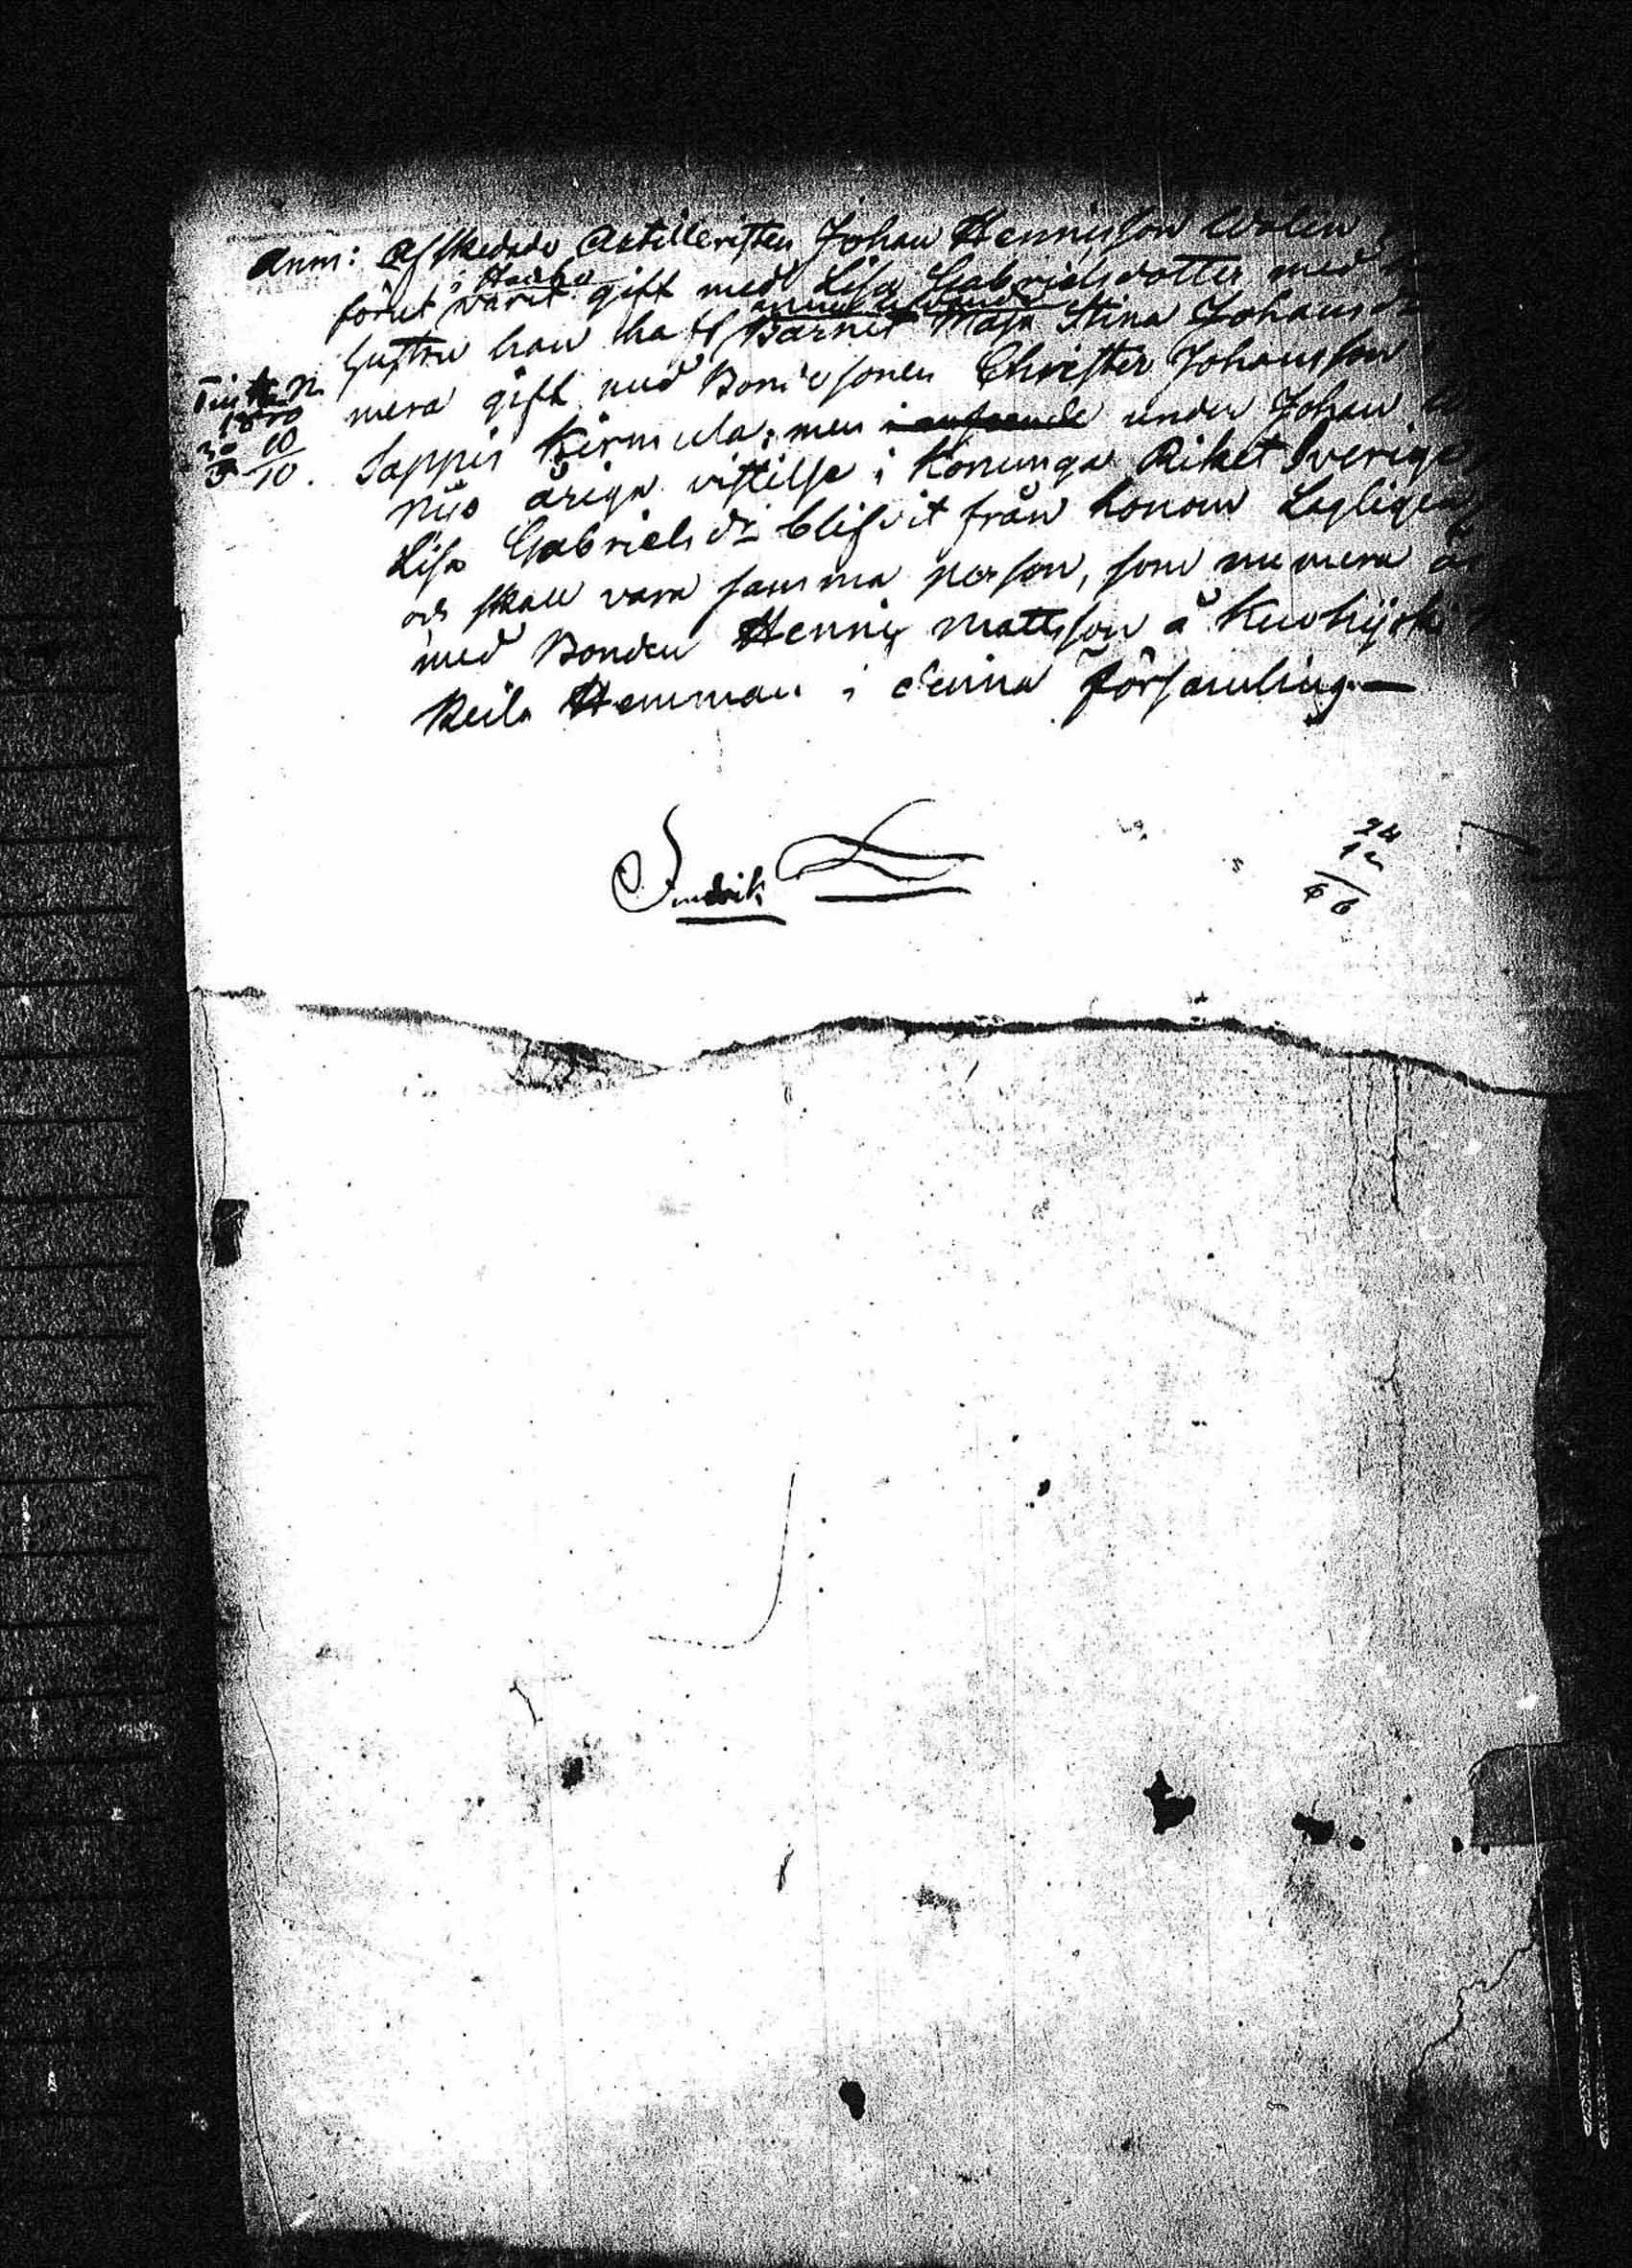 Anm: Afskedade Artilleristen Johan Hennigsson Wolin
i Hauho
förut varit gift med Lisa Gabrielsdotter, med
hustru han haft Barnet Maja Stina Johansdr
mera gift med Bondesonen Christer Johansson
Sappis Kirmula; men under Johan
Nio åriga vistelse i Konunga Riket Sverige
Lisa Gabrielsdr blifvit från honom Lagligen
och skall vara samma person, som numera är
med Bonden Hennig Mattsson å Kuohijoki
Keila Hemman i denna församling.—
1810
10
24
12
66